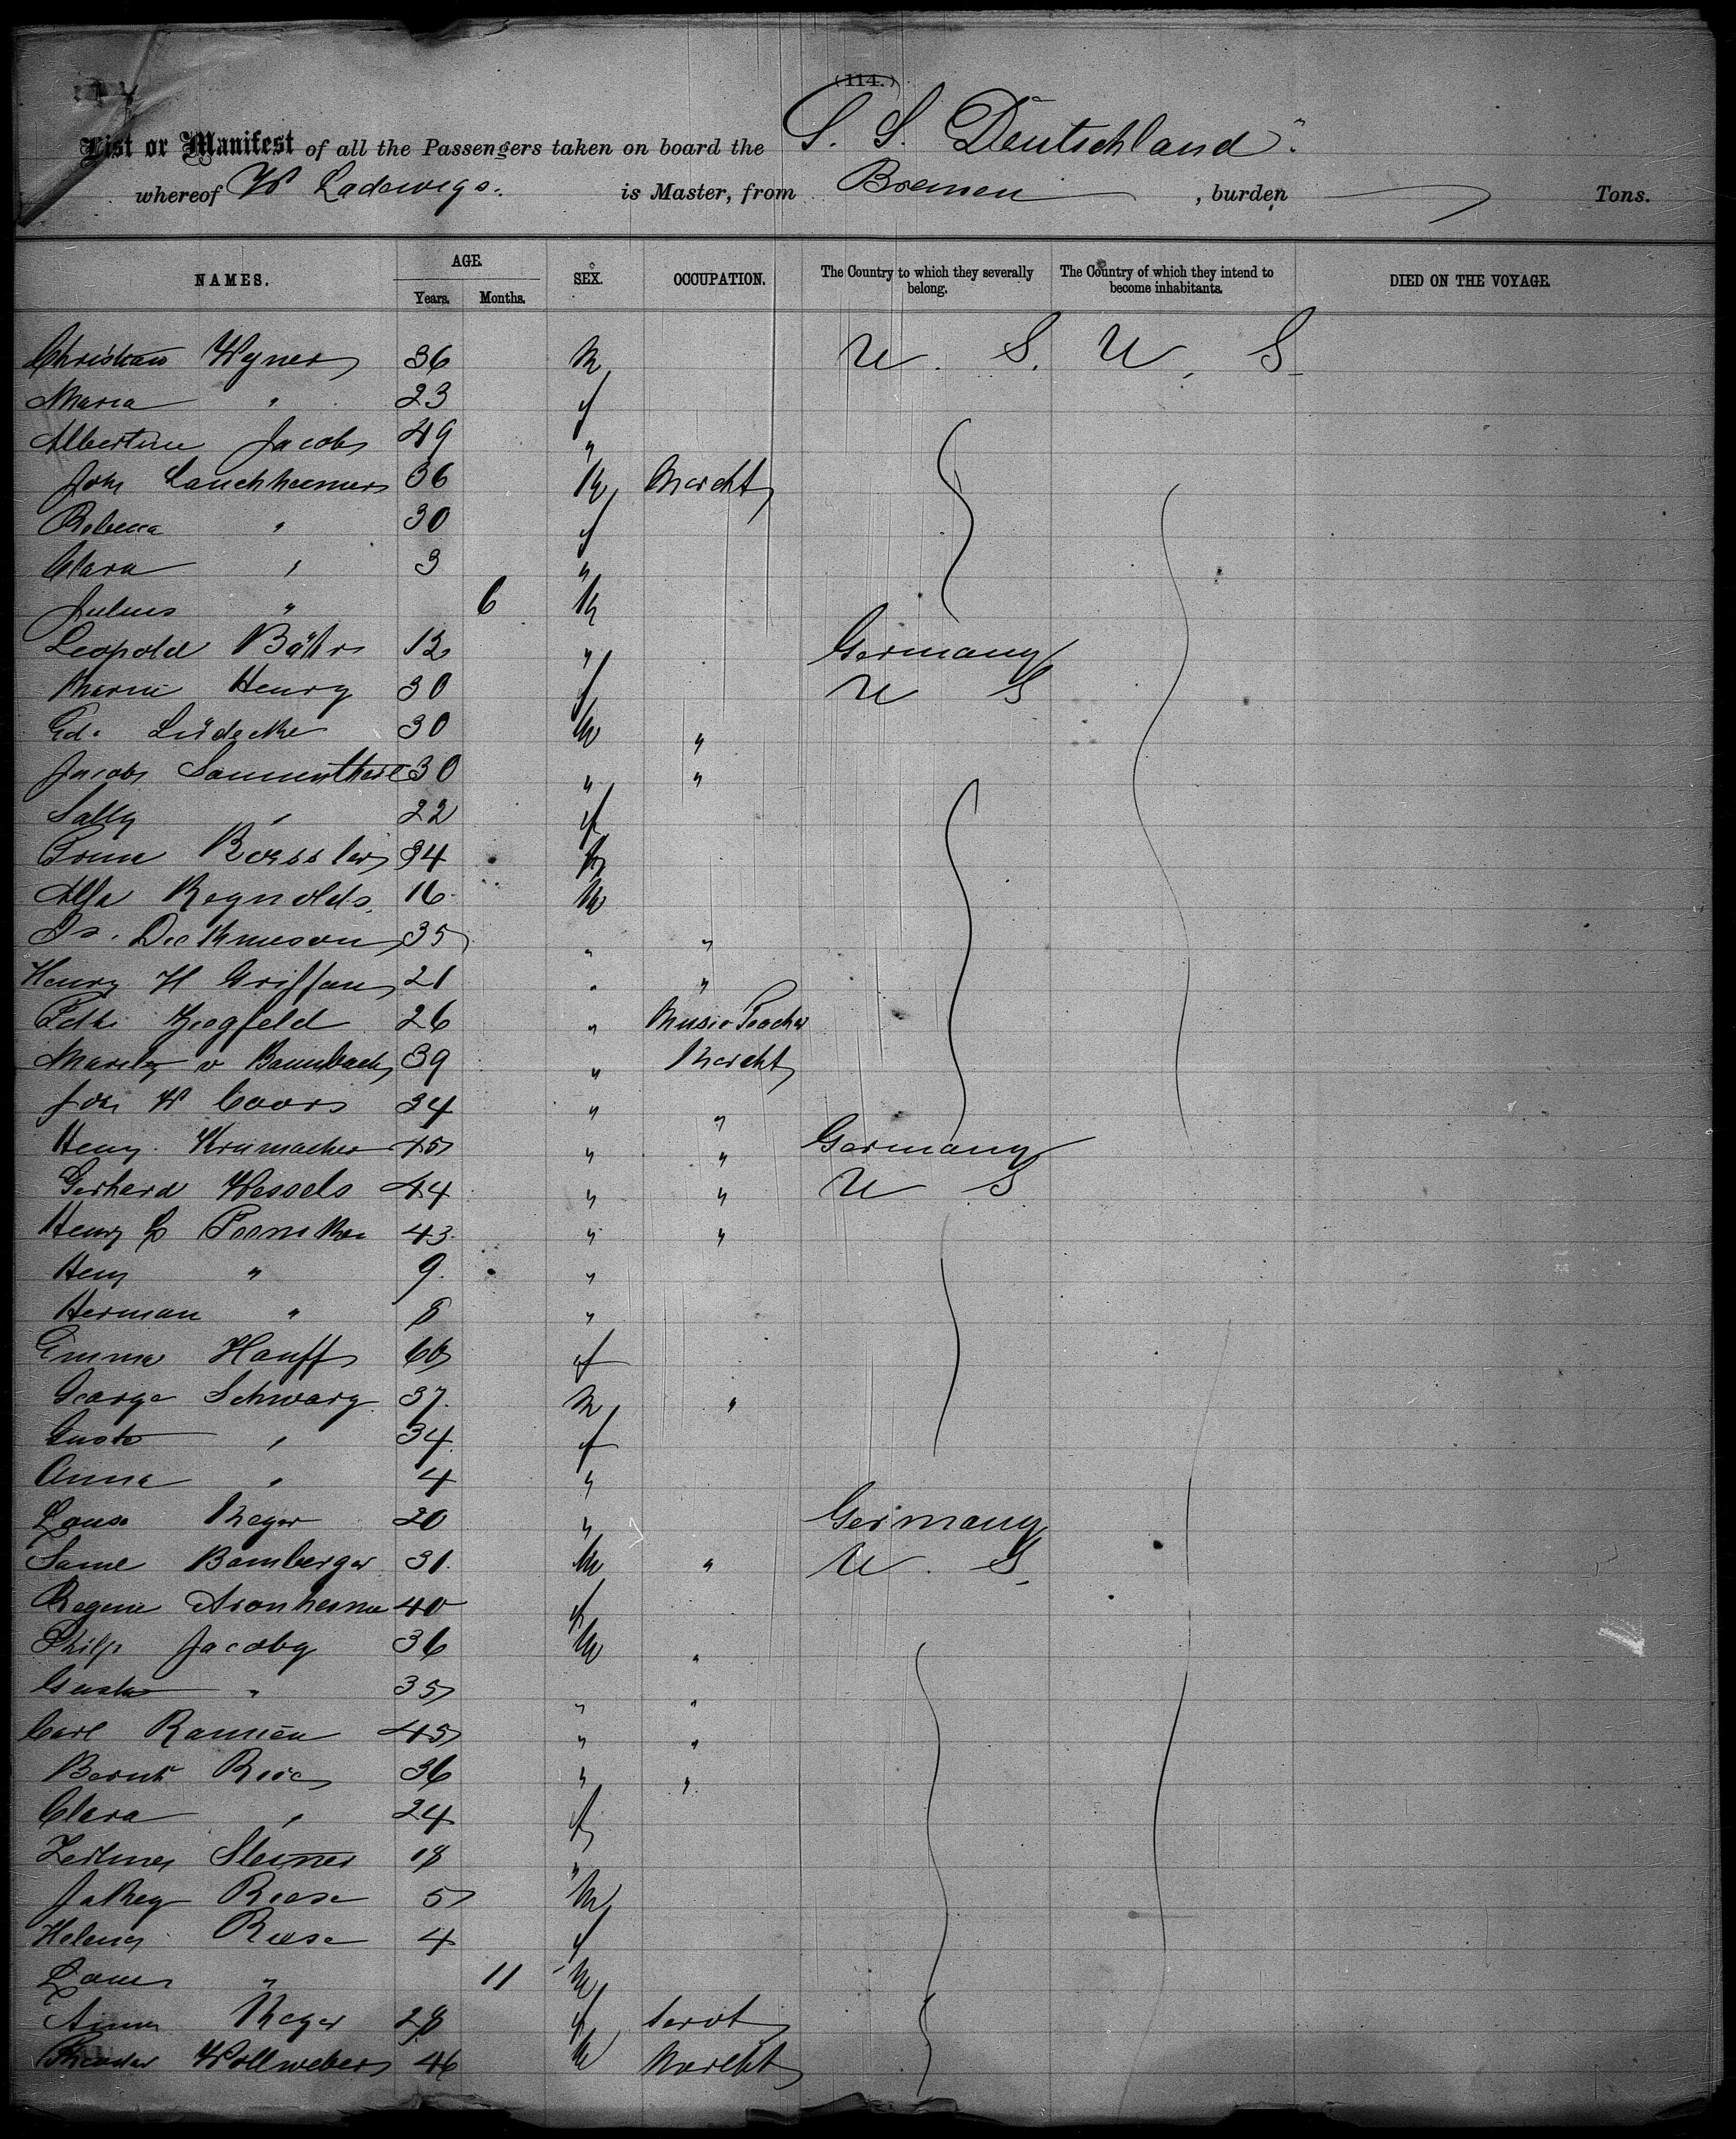 (114.)
List or Manifest of all the Passengers taken on board the S. S. Deutschland
whereof W Ladewigs. is Master, from Bremen, burden Tons.
NAMES. AGE. Years. Months. SEX. OCCUPATION. The Country to which they severally belong. The Country of which they intend to become inhabitants. DIED ON THE VOYAGE.
Christian Wyner 36 M U. S. U. S.
Maria " 23 f
Albertine Jacobs 49 "
John Lauchheimer 36 M Mercht
Rebecca " 30 f
Clara " 3 "
Julius " 6 M
Leopold 12 " Germany
Marie Henry 30 f U S
Ed. Lüdecke 30 M "
Jacob 30 " "
Sally " 22 f
Roessler 34
Reynolds. 16 M
35 " "
Henry H Griffan 21 " "
Ziegfeld 26 " Music Teacher
v Baumbach 39 " Mercht
Joh W Coors 34 " "
Henry Krumacher 45 " " Germany
Gerhard Wessels 44 " " U S
Henry 43 " "
Heny " 9. "
Herman " 8 "
Emma Hauff f
George Schwarz 37. M "
" 34 f
Anna " 4 "
Meyer 20 " Germany
Saml Bamberger 31. M " U. S.
Regine 40 f
Philip Jacoby 36 M "
Gustav " 35 " "
Carl Ramien 45 " "
36 " "
Clara " 24 f
Steiner 18 "
Reese 5 M
Helene Reese 4 f
" 11 M
Meyer 28 f Servt
Theodor Wollweber 46 M Mercht